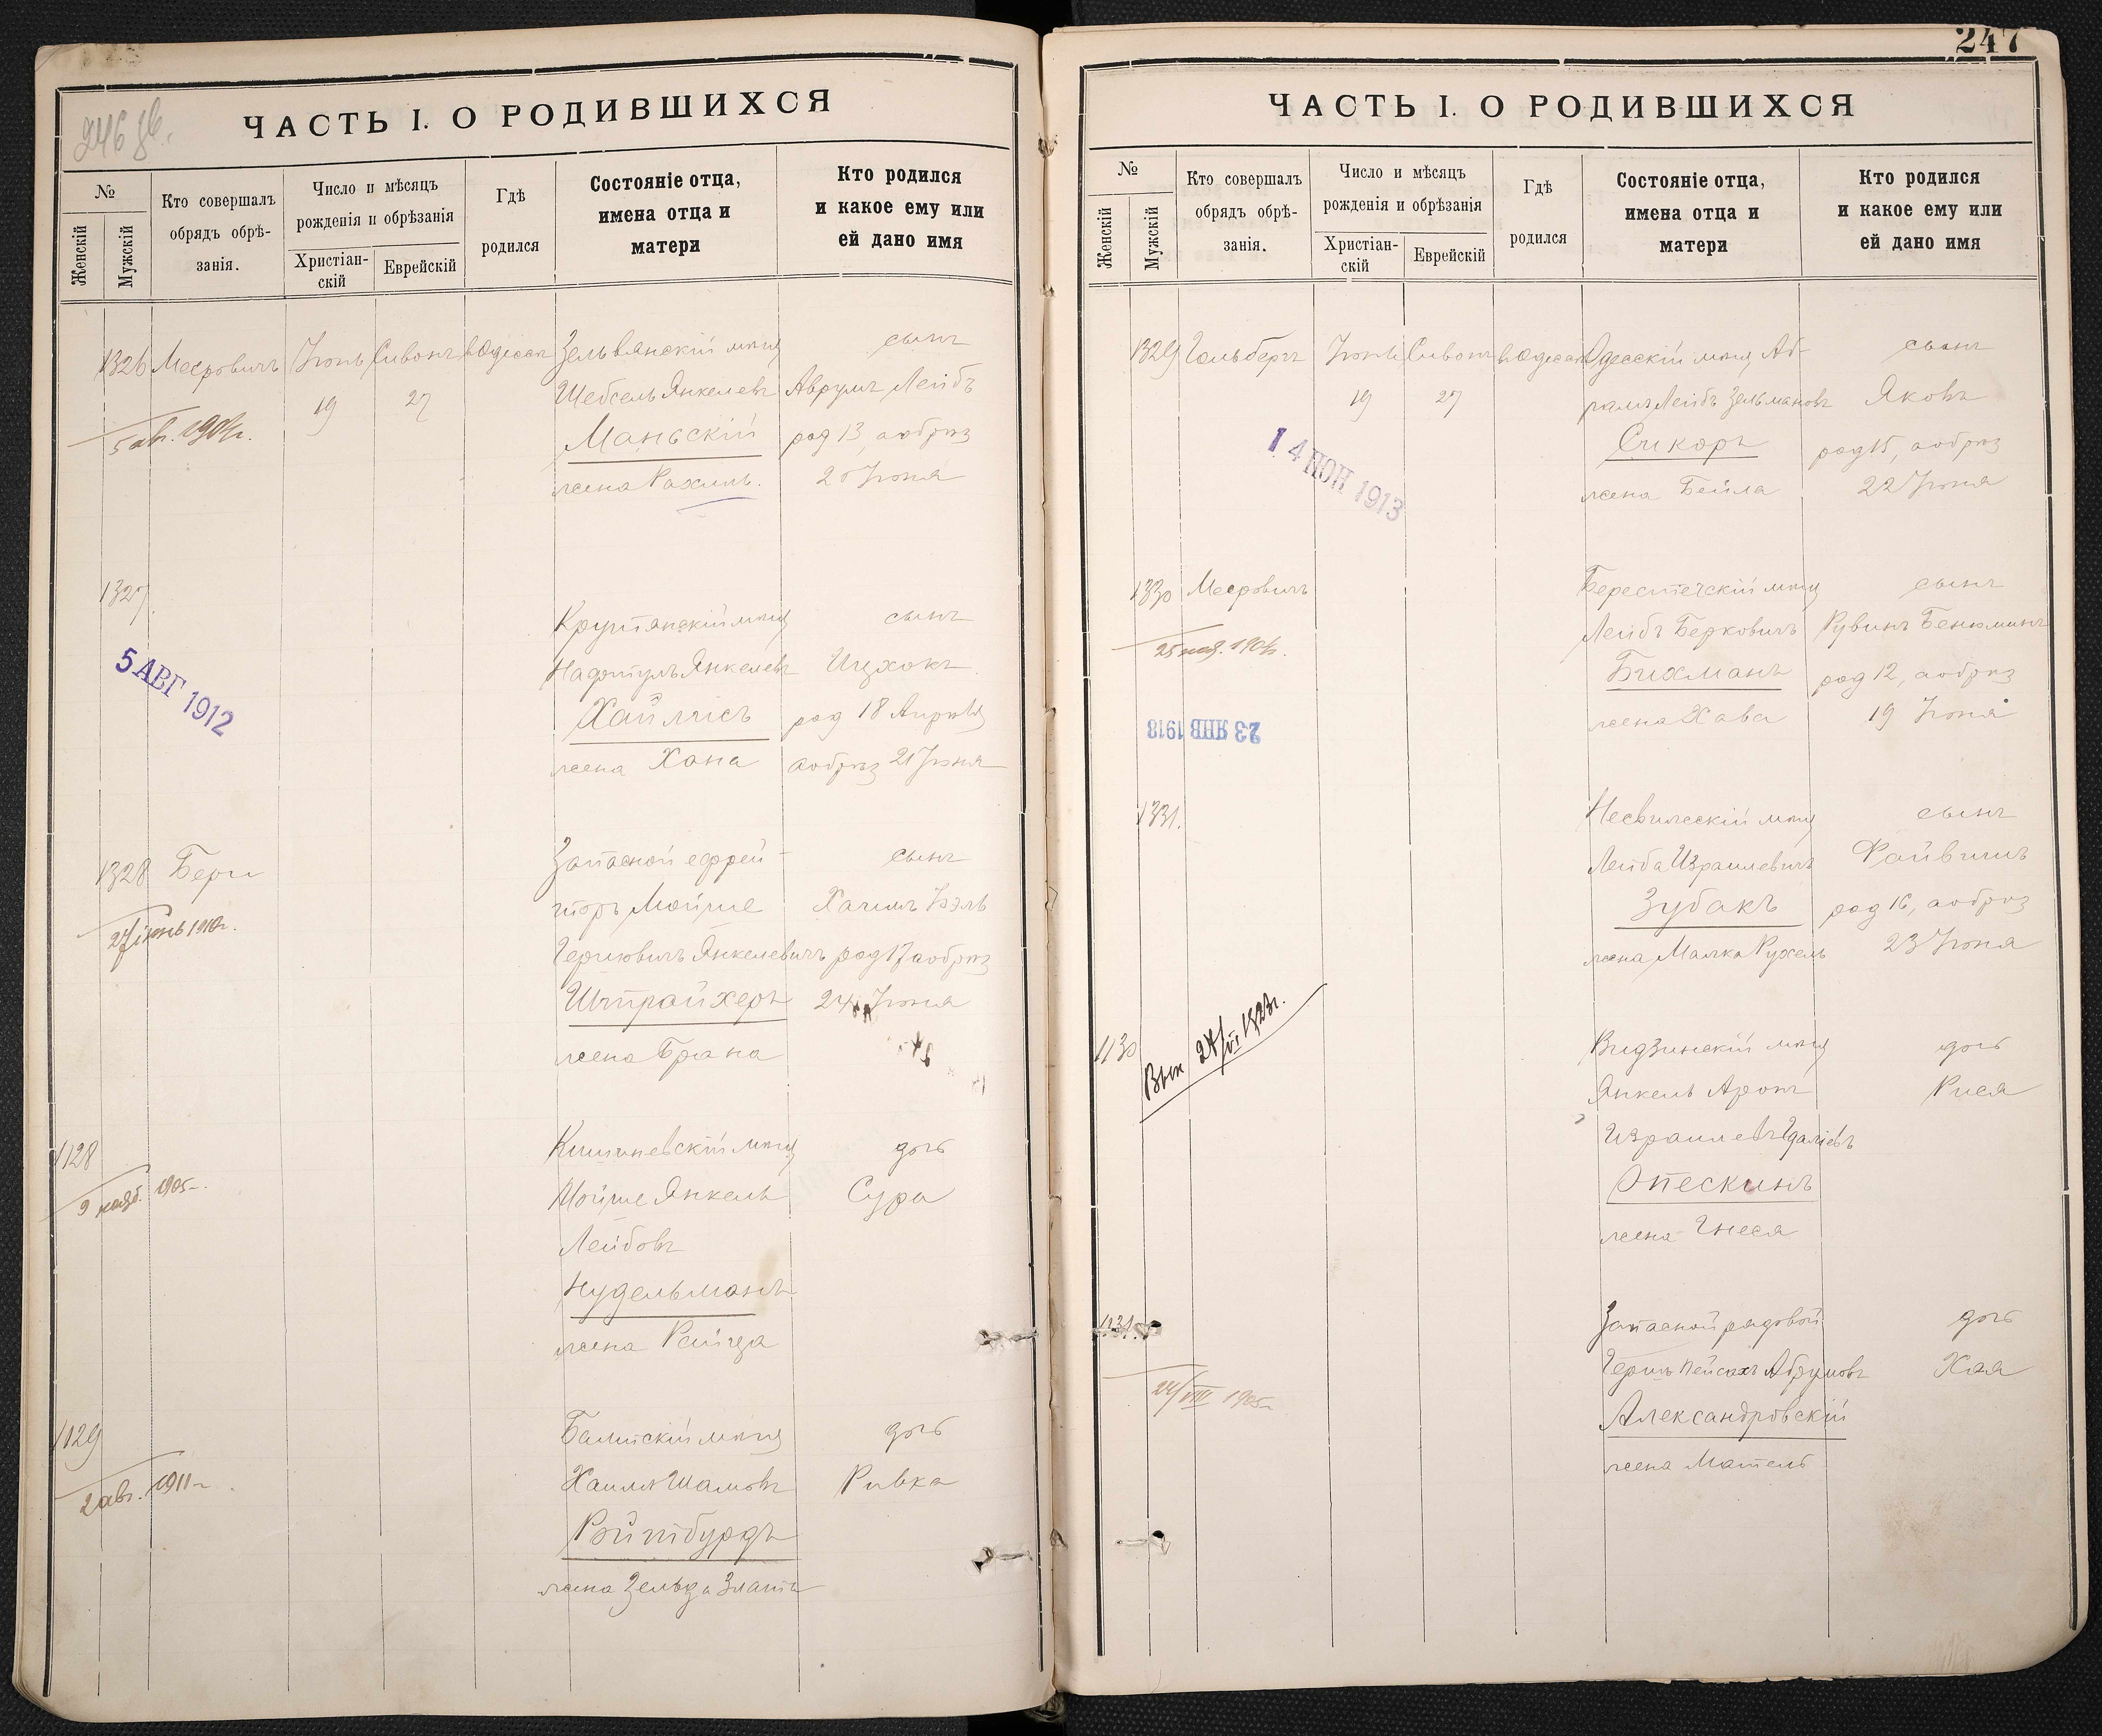 246 об.
ЧАСТЬ I. О РОДИВШИХСЯ
№
Женскій
Мужскій
Кто совершалъ
обрядъ обрѣ-
занія.
Число и мѣсяцъ
рожденія и обрѣзанія
Христіан-
скій
Еврейскій
Гдѣ
родился
Состояніе отца,
имена отца и
матери
Кто родился
и какое ему или
ей дано имя
1326 Меерович Іюнь Сивонъ в Одессѣ Зельвянскій мѣщ сынъ
19 27 Шебсель Янкелевъ Аврумъ Лейбъ
5 ав. 1904г.
Маньскій род 13, а обрѣз
жена Рахиль. 20 Іюня
1327
Крутянскій мѣщ сынъ
Янкелевъ Ицхокъ
5 АВГ 1912
Хаймчисъ род 18 Апрѣля
жена Хана а обрѣз 21 Іюня
1328 Берг Запасной ефрей- сынъ
торъ Мойше Хаимъ
27 1910г.
Гершковичъ Янкелевичъ род 17 а обрѣз
Штрайхеръ 24 Іюня
жена Брана
1128 Кишиневскій мѣщ дочь
9 нояб. 1905
Мойше Янкель Сура
Лейбовъ
Нудельманъ
жена Рейза
1129 Балтскій мѣщ дочь
2 авг. 1911г
Хаимъ Шамовъ Ривка
Ройтбурдъ
жена Зельда Злата
247
ЧАСТЬ I. О РОДИВШИХСЯ
№
Женскій
Мужскій
Кто совершалъ
обрядъ обрѣ-
занія.
Число и мѣсяцъ
рожденія и обрѣзанія
Христіан-
скій
Еврейскій
Гдѣ
родился
Состояніе отца,
имена отца и
матери
Кто родился
и какое ему или
ей дано имя
1329 Гольбергъ Іюнь Сивонъ в Одессѣ Одесскій мѣщ, Аб- сынъ
19 27 рамъ Лейбъ Зельмановъ Яковъ
14 ИЮН 1913
Сикоръ род 15, а обрѣз
жена Бейла 22 Іюня
1330 Меерович Берестечскій мѣщ сынъ
25 1904г.
Лейбъ Берковичъ Рувинъ Бенюминъ
Бихманъ род 12, а обрѣз
23 ЯНВ 1918
жена Хава 19 Іюня
1331. Несвижескій мѣщ сынъ
Лейба Израилевичъ Файвишъ
Зубакъ род 16, а обрѣз
жена Малка Рухель 23 Іюня
1130 Вып 24/VI 1923г.
Видзинскій мѣщ дочь
Янкель Аронъ Рися
Израилевъ
Опескинъ
жена Гнеся
1131. Запасной рядовой дочь
Гершъ Пейсахъ Абрумовъ Хая
24/VIII 1905г
Александровскій
жена Матель